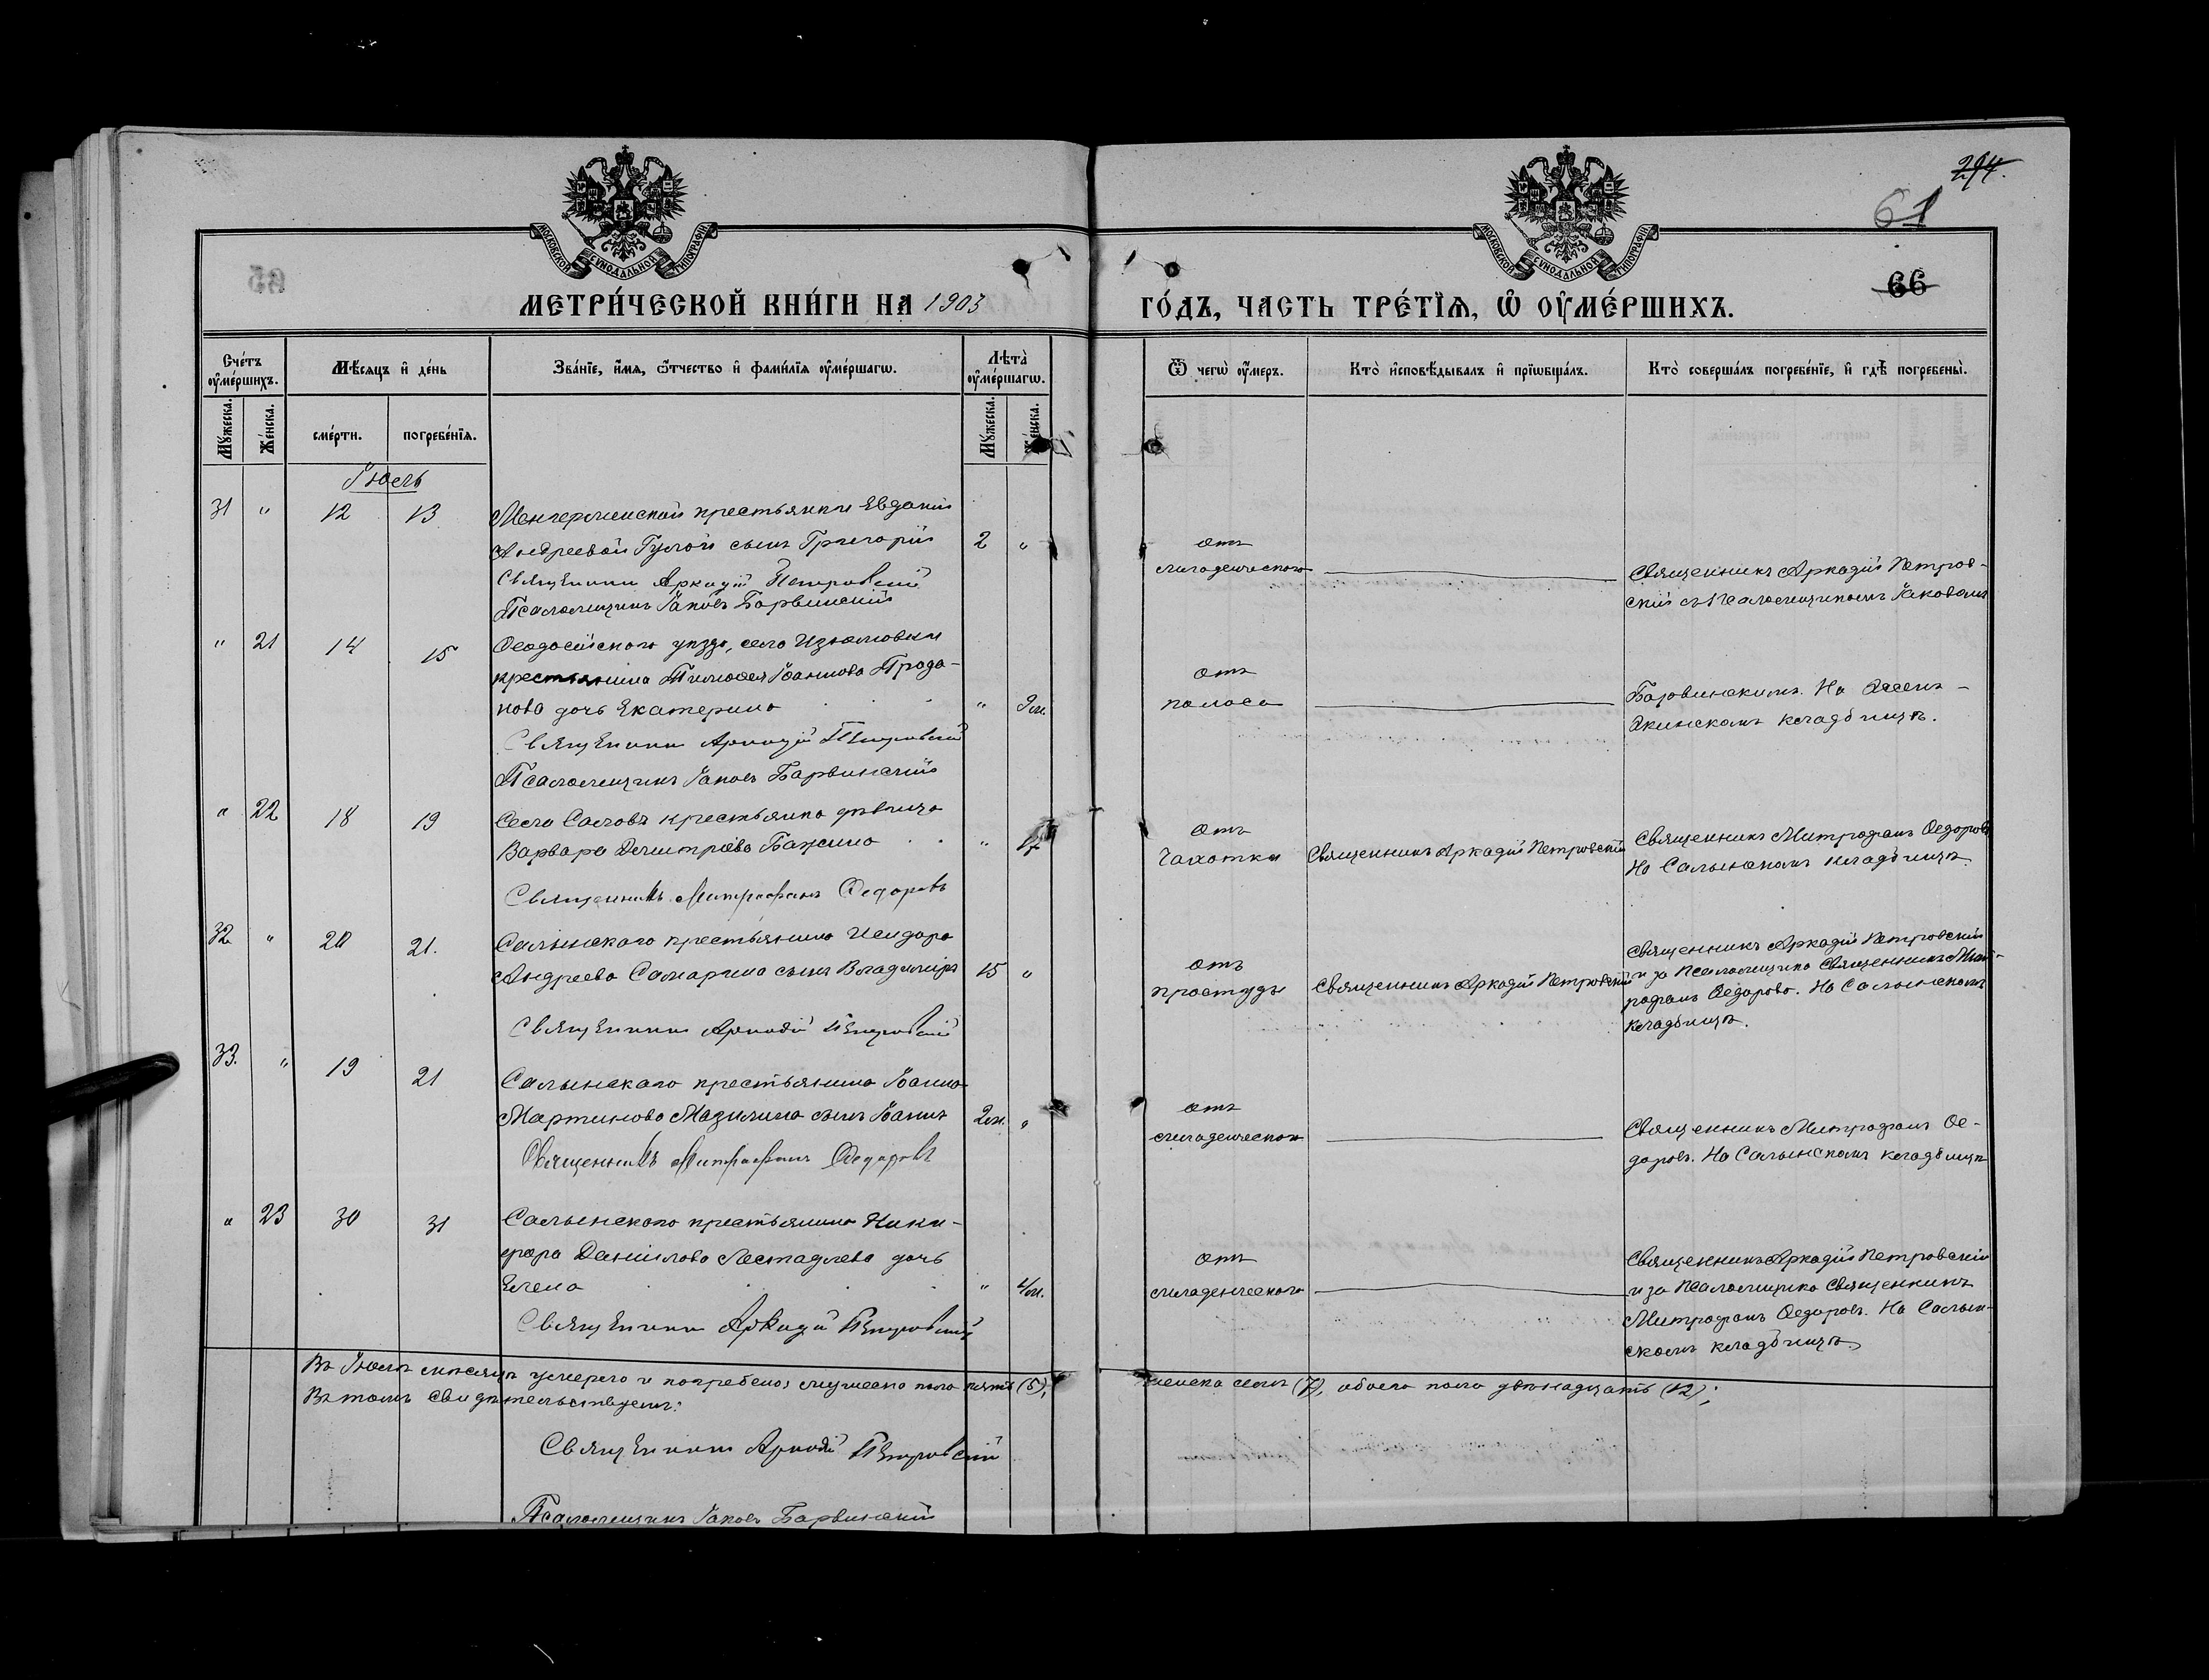 294.
61
66
МОСКОВСКОЙ СУНОДАЛЬНОЙ ТИПОГРАФІИ
МОСКОВСКОЙ СУНОДАЛЬНОЙ ТИПОГРАФІИ
МЕТРИ́ЧЕСКОЙ КНИ́ГИ НА 1903
ГО́ДЪ, ЧАСТЬ ТРЕ́ТЇѦ, Ѡ҆ ОУ҆МЕ́РШИХЪ.
Сче́тъ оу҆ме́ршихъ.
Мѣ́сяцъ и҆ де́нь
Зва́нїе, и҆́мѧ, ѻ҆́тчество и҆ фами́лїѧ оу҆ме́ршагѡ.
Лѣта̀ оу҆ме́ршагѡ.
Ѿ чегѡ̀ оу҆́меръ.
Кто̀ и҆сповѣ́дывалъ и҆ прїѡбща́лъ.
Кто̀ соверша́лъ погребе́нїе, и҆ гдѣ̀ погребены̀.
Мꙋ́жеска.
Же́нска.
сме́рти.
погребе́нїѧ.
Мꙋ́жеска.
Же́нска.
Іюль
31 " 12 13
крестьянки Евдокіи
Андреевой сынъ Григорій 2 "
Священникъ Аркадій Петровскій
Псаломщикъ Іаковъ Барвинскій
отъ
младенческаго
Священникъ Аркадій Петров-
скій съ псаломщикомъ Іаковомъ
" 21 14 15
Ѳеодосійскаго уѣзда, села Изюмовки
крестьянина Тимоѳея Іоаннова Прода-
нова дочь Екатерина " 9 м.
Священникъ Аркадій Петровскій
Псаломщикъ Іаковъ Барвинскій
отъ
поноса
Барвинскимъ. На
кладбищѣ.
" 22 18 19
Села Саловъ крестьянка дѣвица
Варвара Димитріева Бажина " 17
Священникъ Митрофанъ Ѳедоровъ
отъ
Чахотки
Священникъ Аркадій Петровскій
Священникъ Митрофанъ Ѳедоровъ
На Салынскомъ кладбищѣ.
32 " 20 21.
Салынскаго крестьянина Исидора
Андреева Самарина сынъ Владиміръ 15 "
Священникъ Аркадій Петровскій
отъ
простуды
Священникъ Аркадій Петровскій
Священникъ Аркадій Петровскій
и за псаломщика Священникъ Мит-
рофанъ Ѳедоровъ. На Салынскомъ
кладбищѣ.
33. " 19 21
Салынскаго крестьянина Іоанна
Мартинова Мазилина сынъ Іоаннъ 2 м. "
Священникъ Митрофанъ Ѳедоровъ
отъ
младенческаго
Священникъ Митрофанъ Ѳе-
доровъ. На Салынскомъ кладбищѣ
" 23 30 31
Салынскаго крестьянина Ники-
фора Даніилова дочь
Елена " 4 м.
Священникъ Аркадій Петровскій
отъ
младенческаго
Священникъ Аркадій Петровскій
и за псаломщика Священникъ
Митрофанъ Ѳедоровъ. На Салын-
скомъ кладбищѣ.
Въ Іюлѣ мѣсяцѣ умерло и погребено: мужеска пола пять (5), женска семь (7), обоего пола двѣнадцать (12);
Въ томъ свидѣтельствуемъ:
Священникъ Аркадій Петровскій
Псаломщикъ Іаковъ Барвинскій